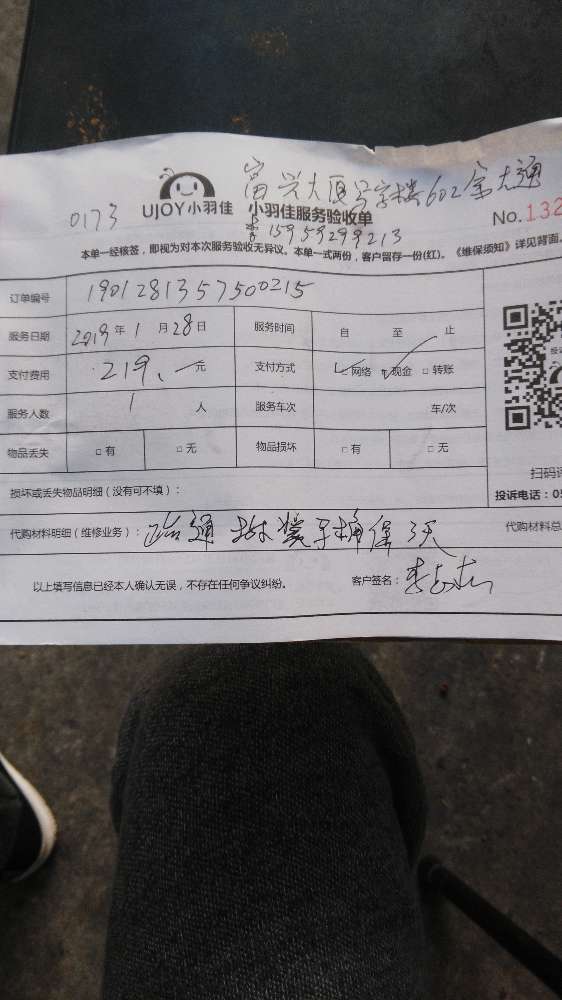 富兴大厦写字楼602金大通
0173 UJOY小羽佳 小羽佳服务验收单 No.132
15959299213
本单一经核签，即视为对本次服务验收无异议。本单一式两份，客户留存一份(红)。《维保须知》详见背面。
订单编号 1901281357500215
服务日期 2019年1月28日 服务时间 自 至 止
支付费用 219、元 支付方式 网络 现金 转账
服务人数 1 人 服务车次 车/次
物品丢失 有 无 物品损坏 有 无
扫码
损坏或丢失物品明细（没有可不填）：
投诉电话：05
代购材料明细（维修业务）： 保3天 代购材料总
以上填写信息已经本人确认无误，不存在任何争议纠纷。 客户签名：